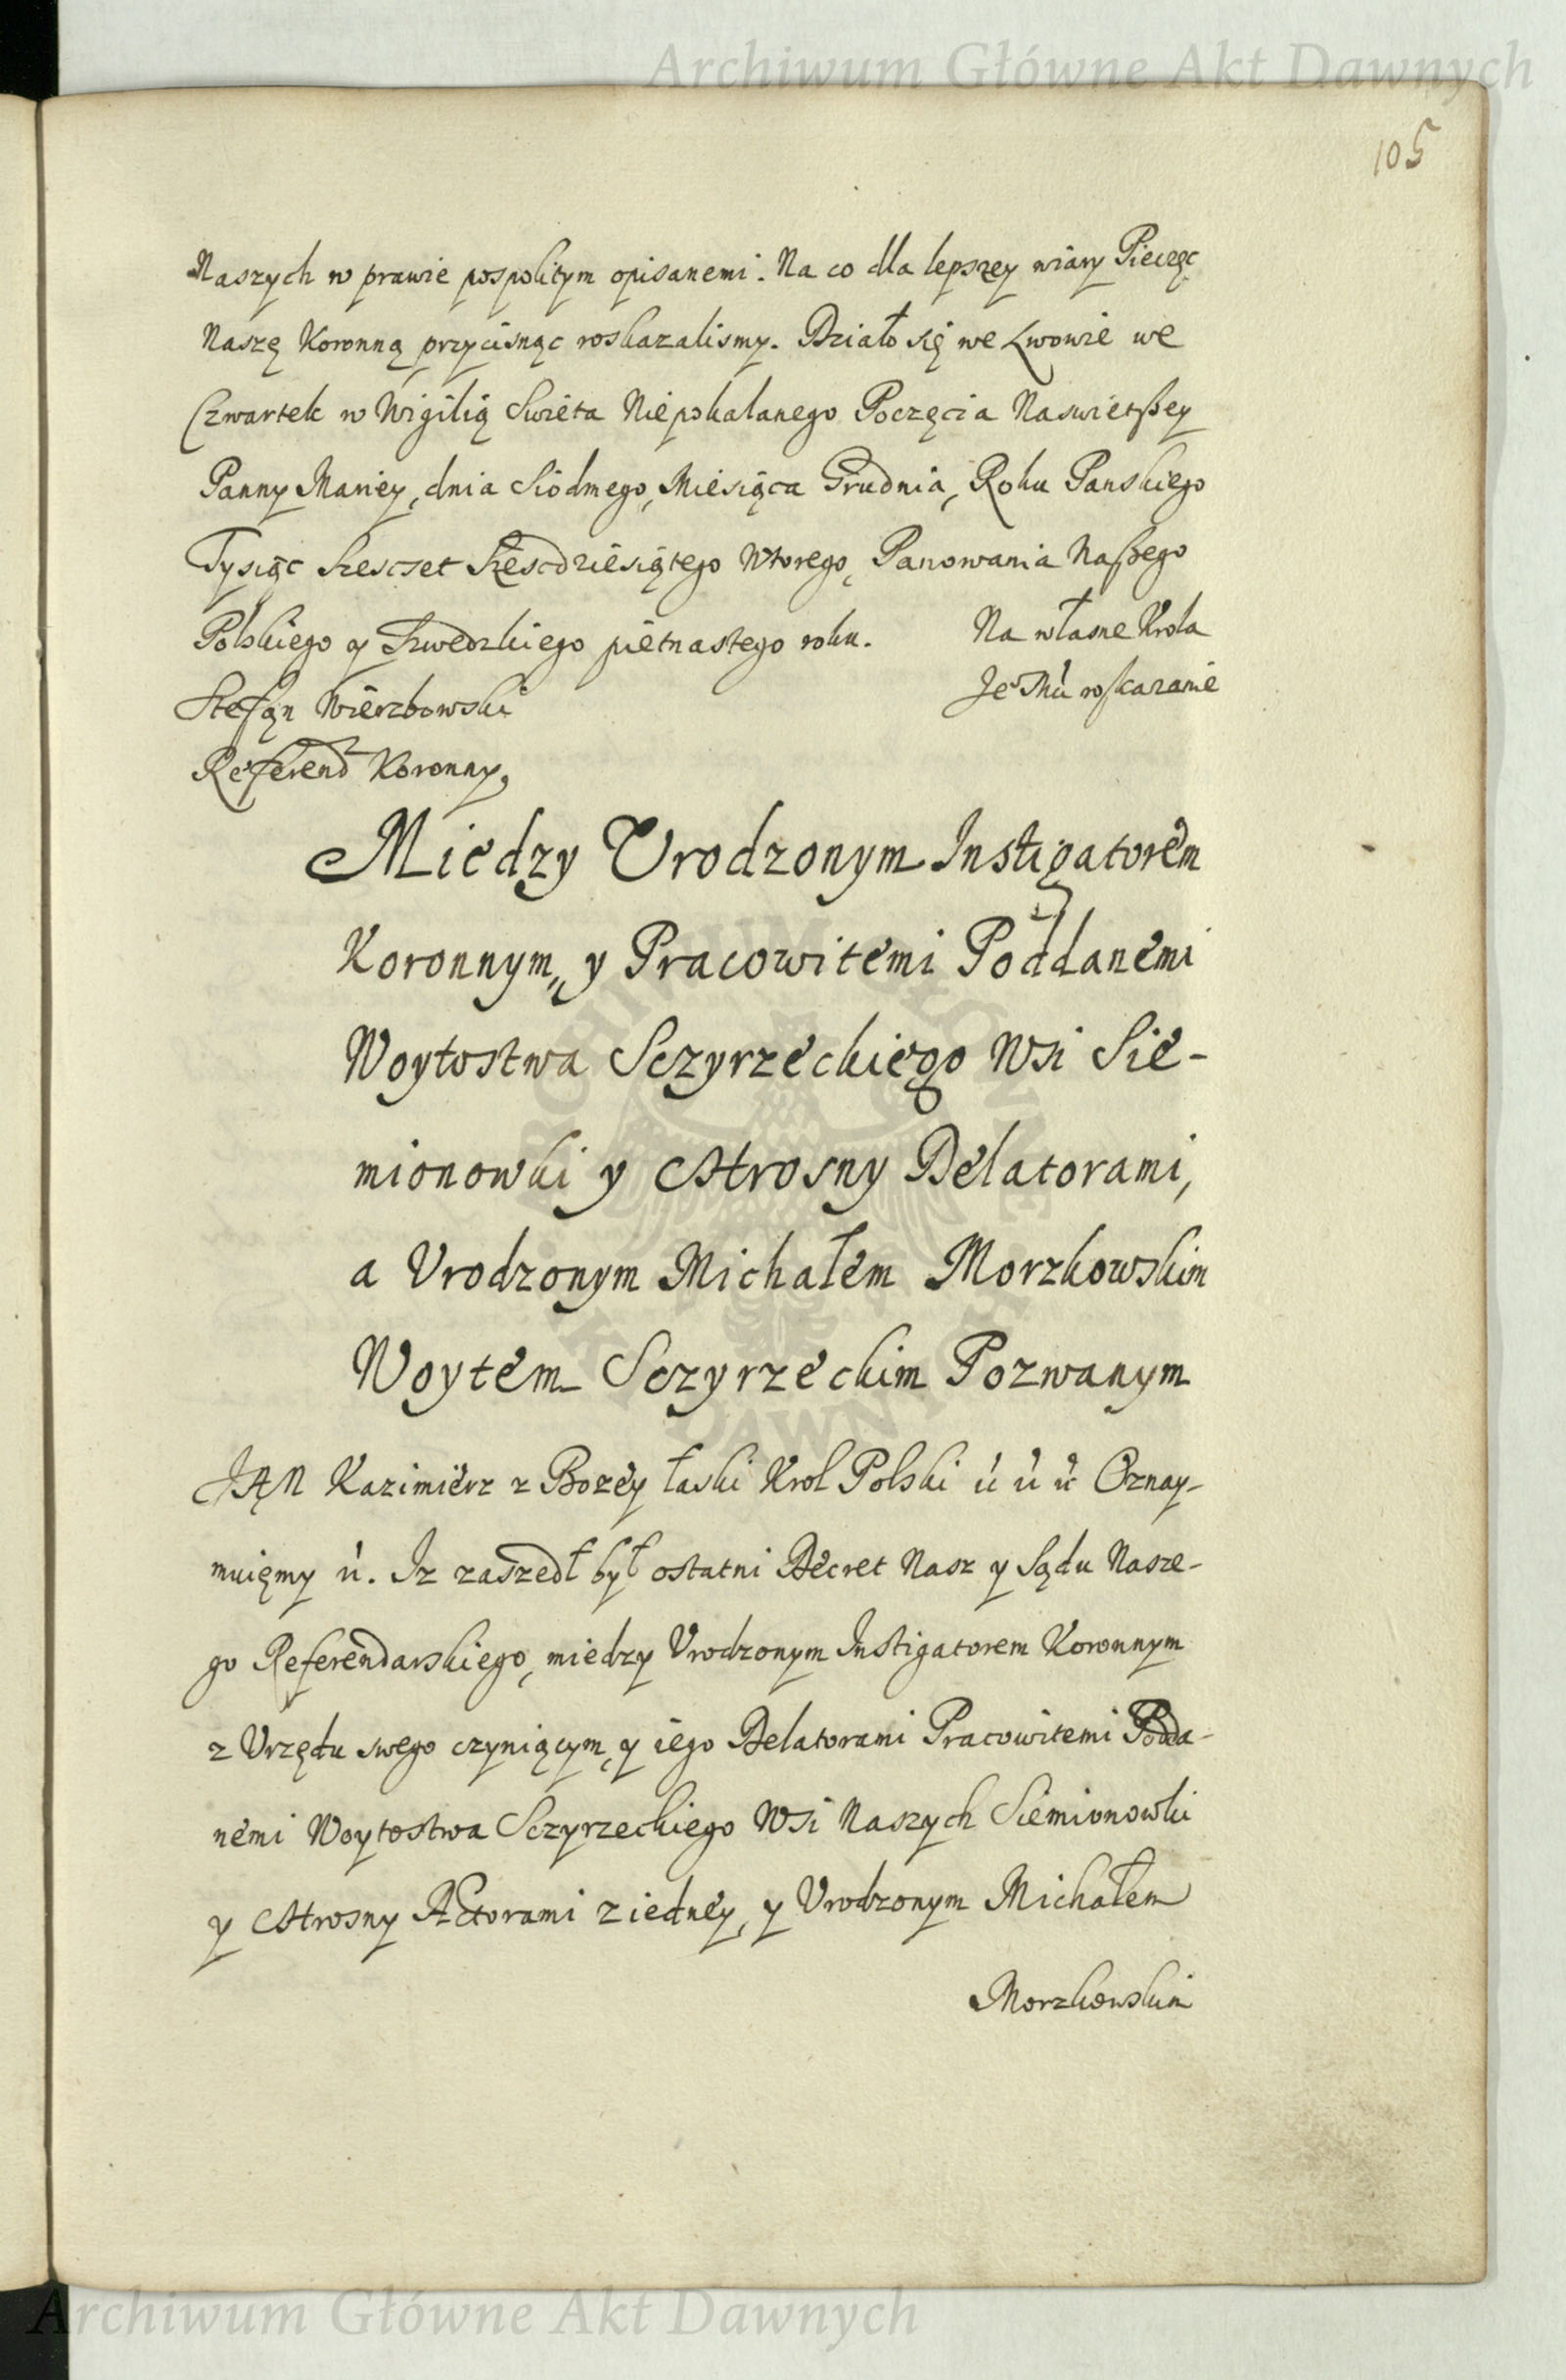 Archiwum Główne Akt Dawnych
105
Naszych w prawie pospolitym opisanemi. Na co dla lepszey wiary Pieczęc
Naszę Koronną przycisnąc roskazalismy. Działo się we Lwowie we
Czwartek w Wigilią Swięta Niepokalanego Poczęcia Naswiętßey
Panny Mariey, dnia Siodmego, Miesiąca Grudnia, Roku Panskiego
Tysiąc Szescset Szescdziesiątego Wtorego, Panowania Naßego
Polskiego y Szwedzkiego piętnastego roku. Na własne Krola
Stefan Wierzbowski Je° Mći roskazanie
Referend Koronny,
Miedzy Vrodzonym Instigatorem
Koronnym, y Pracowitemi Poddanemi
Woytostwa Sczyrzeckiego Wsi Sie-
mionowki y Chrosny Delatorami,
a Vrodzonym Michałem Morzkowskim
Woytem Sczyrzeckim Pozwanym
JAN Kazimierz z Bozey łaski Krol Polski &c &c &c Oznay-
muięmy &c. Iz zaszedł był ostatni Decret Nasz y Sądu Nasze-
go Referendarskiego, miedzy Vrodzonym Instigatorem Koronnym
z Vrzędu swego czyniącym, y iego Delatorami Pracowitemi Podda-
nemi Woytostwa Sczyrzeckiego Wsi Naszych Siemionowki
y Chrosny Actorami z iedney, y Vrodzonym Michałem
Morzkowskim
Archiwum Główne Akt Dawnych